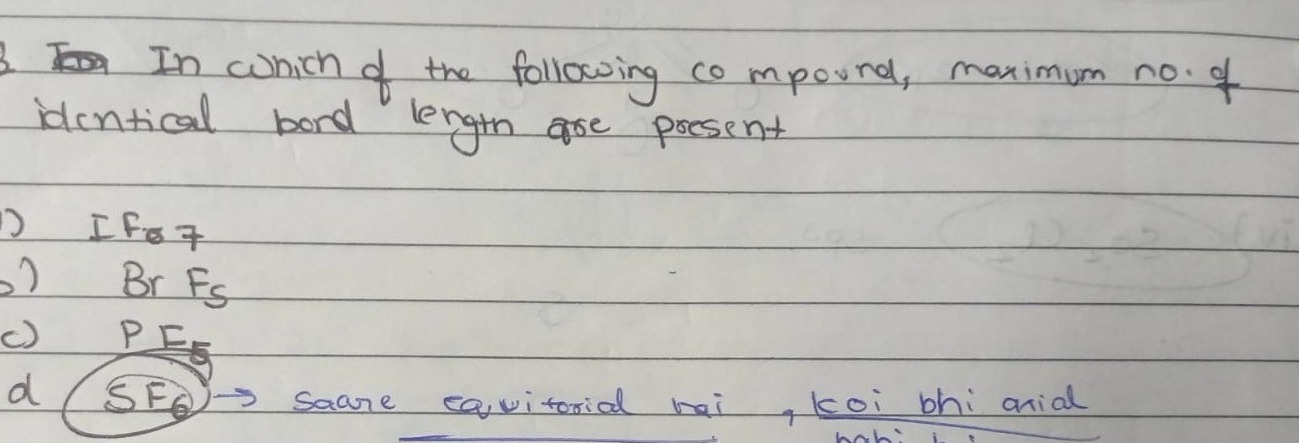 In which of the following compound, maximum no. of
identical bond length are present
IF7
b) Br F5
c) PF5
d SF6 → saare equitorial hai , koi bhi axial